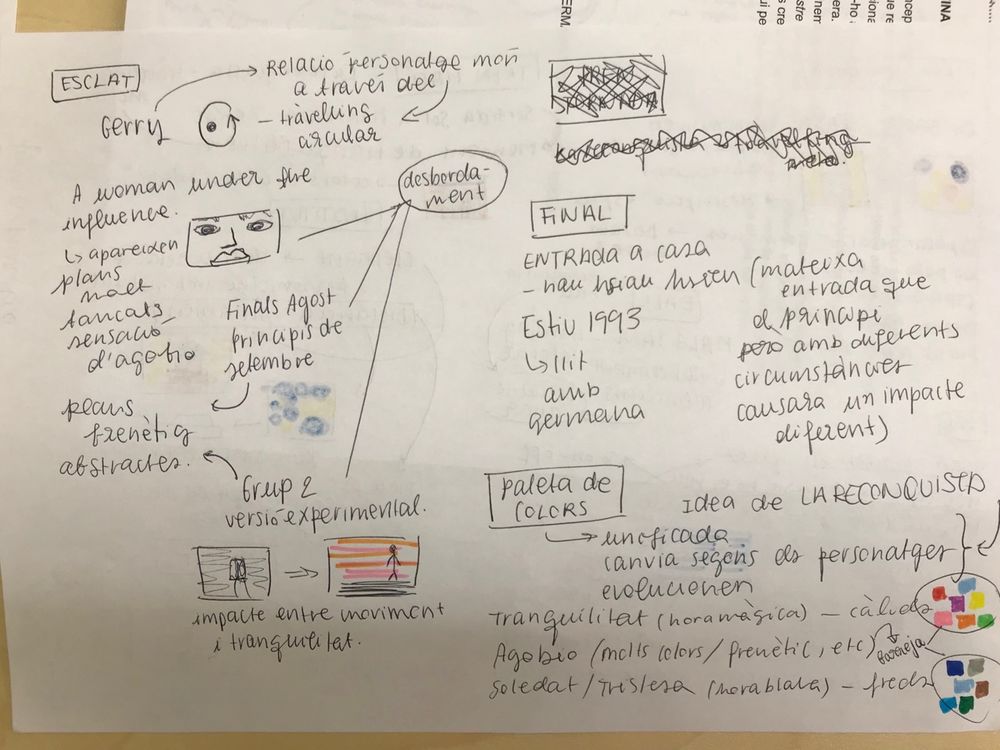 ESCLAT
Relació personatge món
a través del
- tràvelling
circular
Gerry
A woman under the
influence.
↳ apareixen
plans
molt
tancats
sensació
d'agobio
desborda-
ment
Finals Agost
principis de
setembre
plans
frenètig
abstractes.
Grup 2
versió experimental.
impacte entre moviment
i tranquilitat.
FINAL
ENTRADA a casa
- hau hsiau hsien (mateixa
entrada que
el principi
pero amb diferents
circumstàncies
causara un impacte
diferent)
Estiu 1993
↳ llit
amb
germana
paleta de
COLORS
Idea de LA RECONQUISTA
→ unificada
canvia segons els personatges
evolucionen
Tranquilitat (hora màgica) - càlids
Agobio (molts colors / frenètic, etc)
barreja
Soledat / Tristesa (hora blava) - freds
ERM.
INA